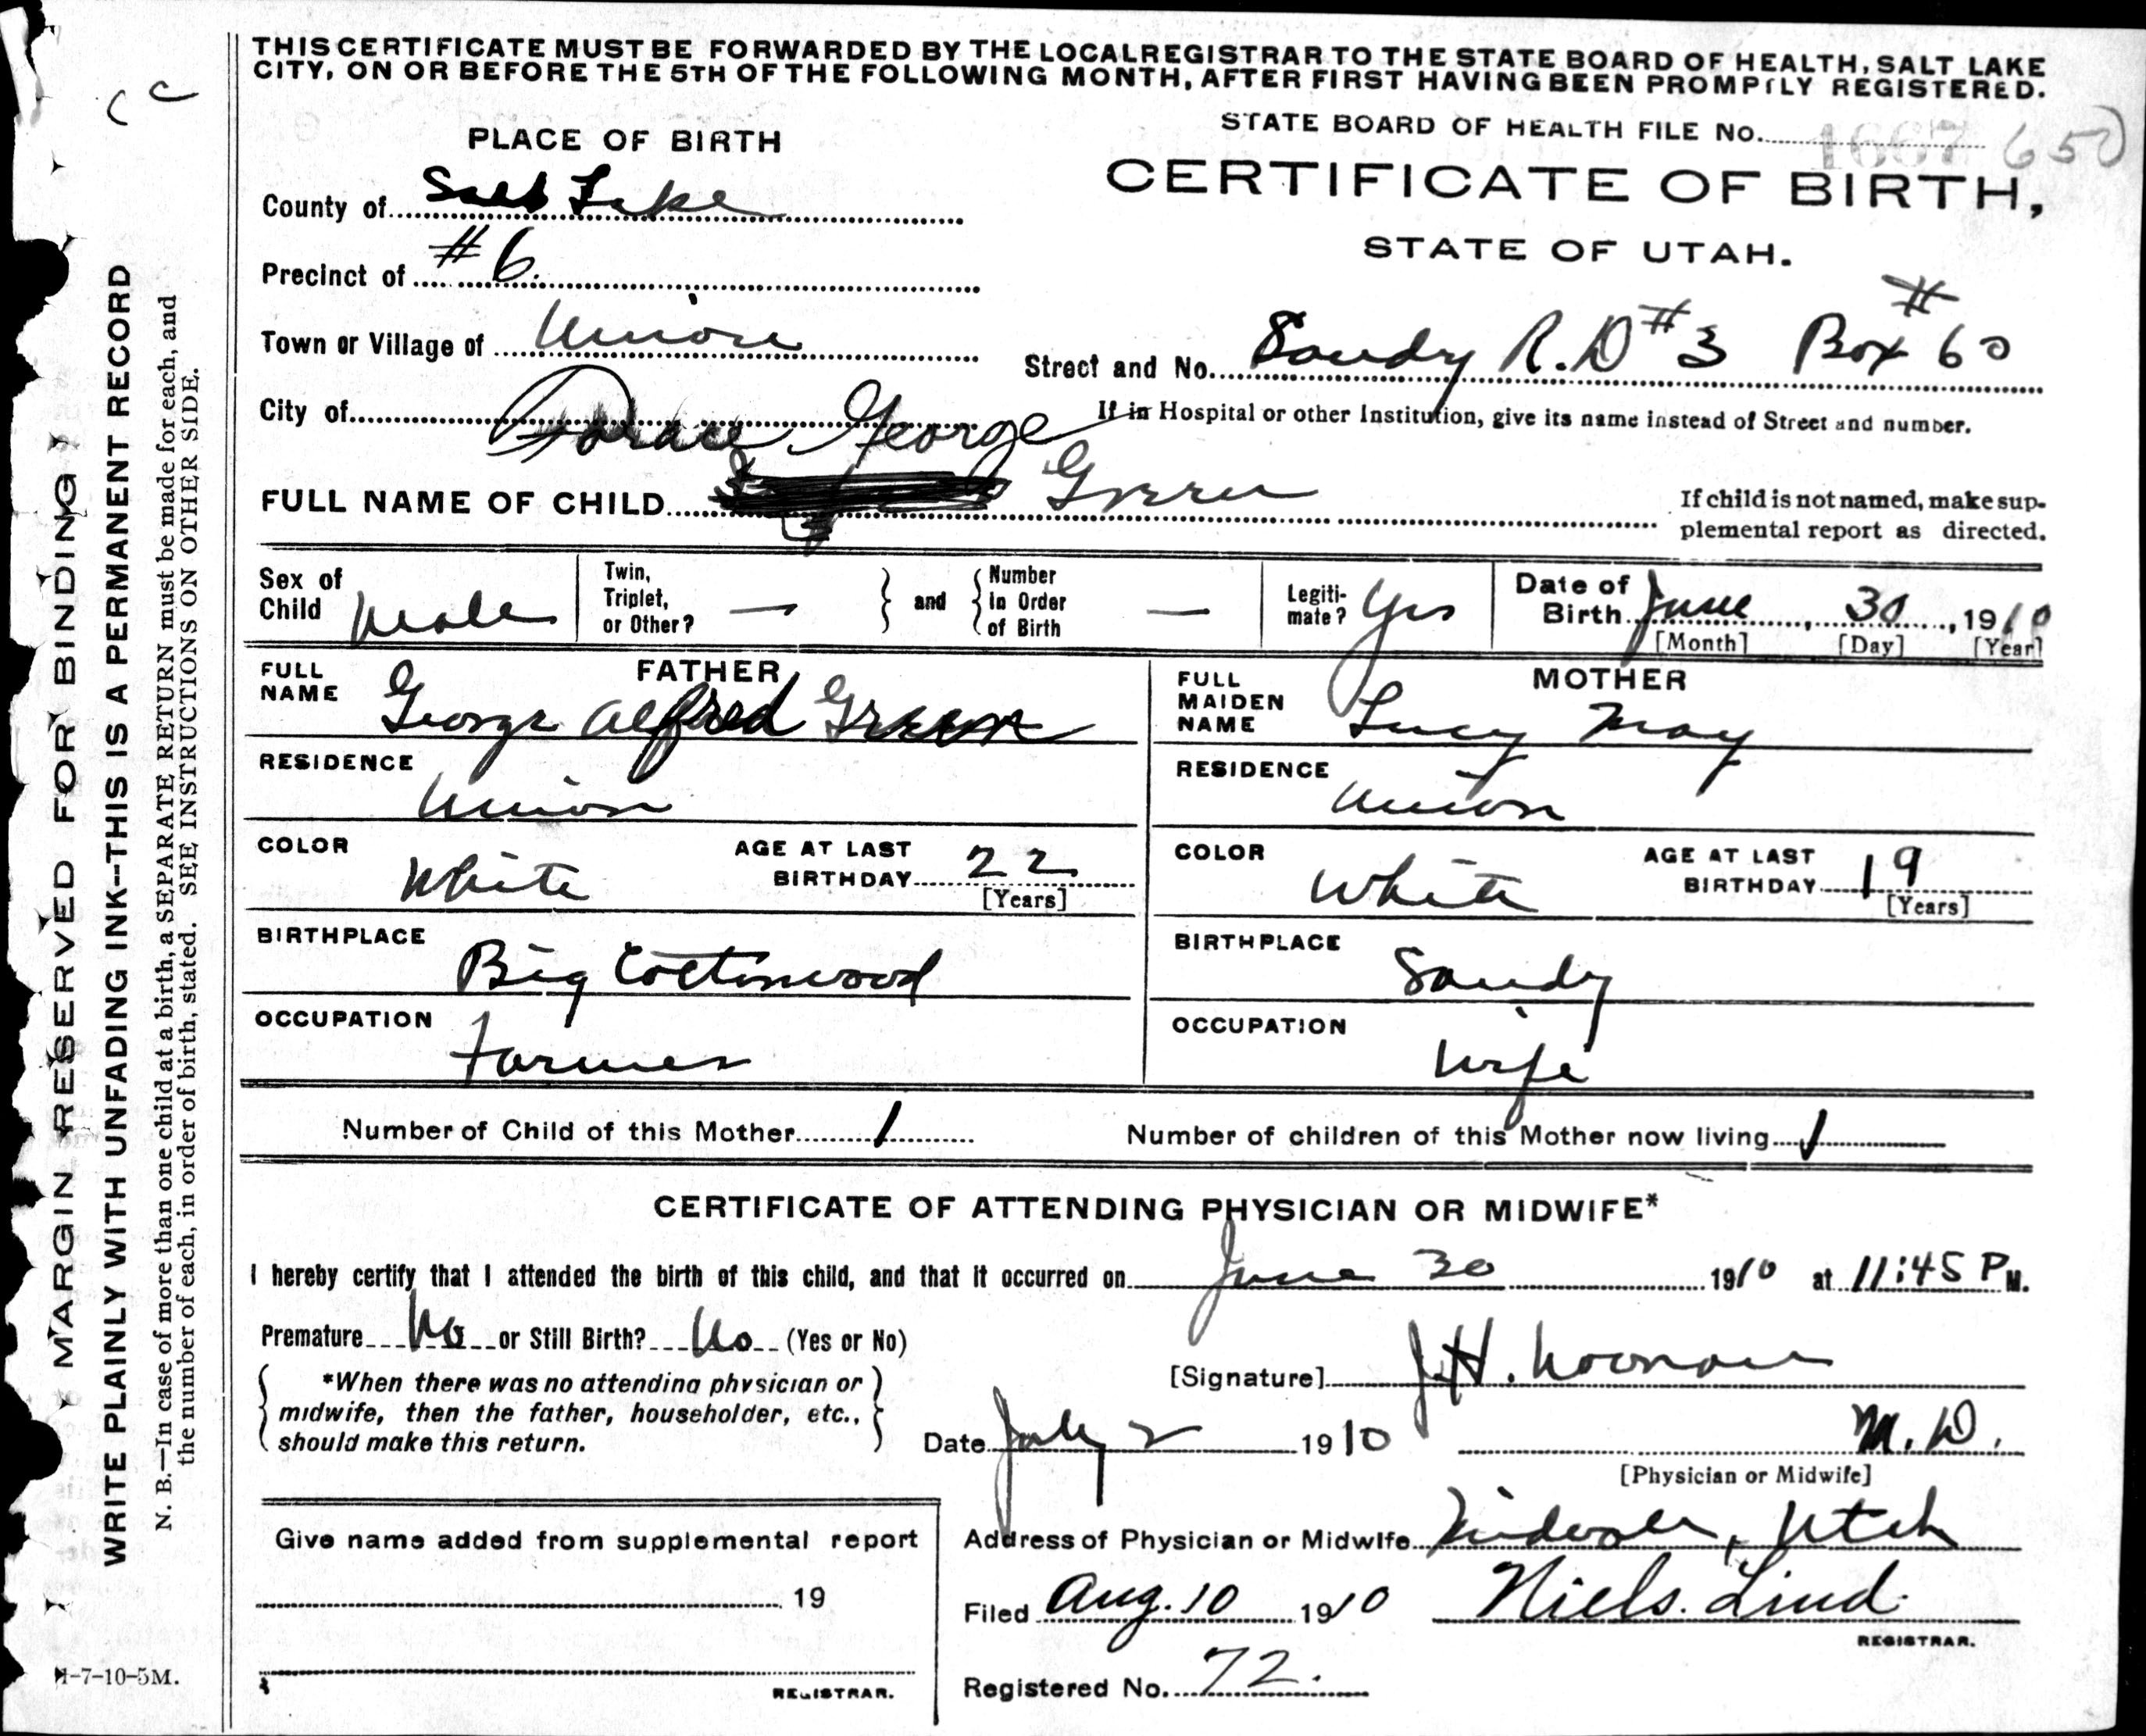 THIS CERTIFICATE MUST BE FORWARDED BY THE LOCAL REGISTRAR TO THE STATE BOARD OF HEALTH, SALT LAKE
CITY, ON OR BEFORE THE 5TH OF THE FOLLOWING MONTH, AFTER FIRST HAVING BEEN PROMPTLY REGISTERED.
STATE BOARD OF HEALTH FILE No. 1667 650
PLACE OF BIRTH
CERTIFICATE OF BIRTH,
STATE OF UTAH.
County of Salt Lake
Precinct of #6.
Town or Village of Union
Street and No. Sandy R.D #3 Box #60
City of
If in Hospital or other Institution, give its name instead of Street and number.
George
FULL NAME OF CHILD Green
If child is not named, make sup-
plemental report as directed.
Sex of Child Male
Twin, Triplet, or Other? —
and
Number in Order of Birth —
Legiti-mate? Yes
Date of Birth June 30, 1910
[Month] [Day] [Year]
FATHER
FULL NAME George Alfred Green
RESIDENCE
Union
COLOR White
AGE AT LAST BIRTHDAY 22
[Years]
BIRTHPLACE
Big Cottonwood
OCCUPATION
Farmer
MOTHER
FULL MAIDEN NAME Lucy May
RESIDENCE
Union
COLOR White
AGE AT LAST BIRTHDAY 19
[Years]
BIRTHPLACE
Sandy
OCCUPATION
Wife
Number of Child of this Mother 1
Number of children of this Mother now living 1
CERTIFICATE OF ATTENDING PHYSICIAN OR MIDWIFE*
I hereby certify that I attended the birth of this child, and that it occurred on June 30 1910 at 11:45 P M.
Premature No or Still Birth? No (Yes or No)
*When there was no attending physician or
midwife, then the father, householder, etc.,
should make this return.
[Signature] J.H. Noonan
Date July 2 1910
M.D.
[Physician or Midwife]
Address of Physician or Midwife Midvale, Utah
Give name added from supplemental report
19
REGISTRAR.
Filed Aug. 10 1910
Niels Lind
REGISTRAR.
Registered No. 72.
MARGIN RESERVED FOR BINDING
WRITE PLAINLY WITH UNFADING INK--THIS IS A PERMANENT RECORD
N. B.—In case of more than one child at a birth, a SEPARATE RETURN must be made for each, and
the number of each, in order of birth, stated. SEE INSTRUCTIONS ON OTHER SIDE.
1-7-10-5M.